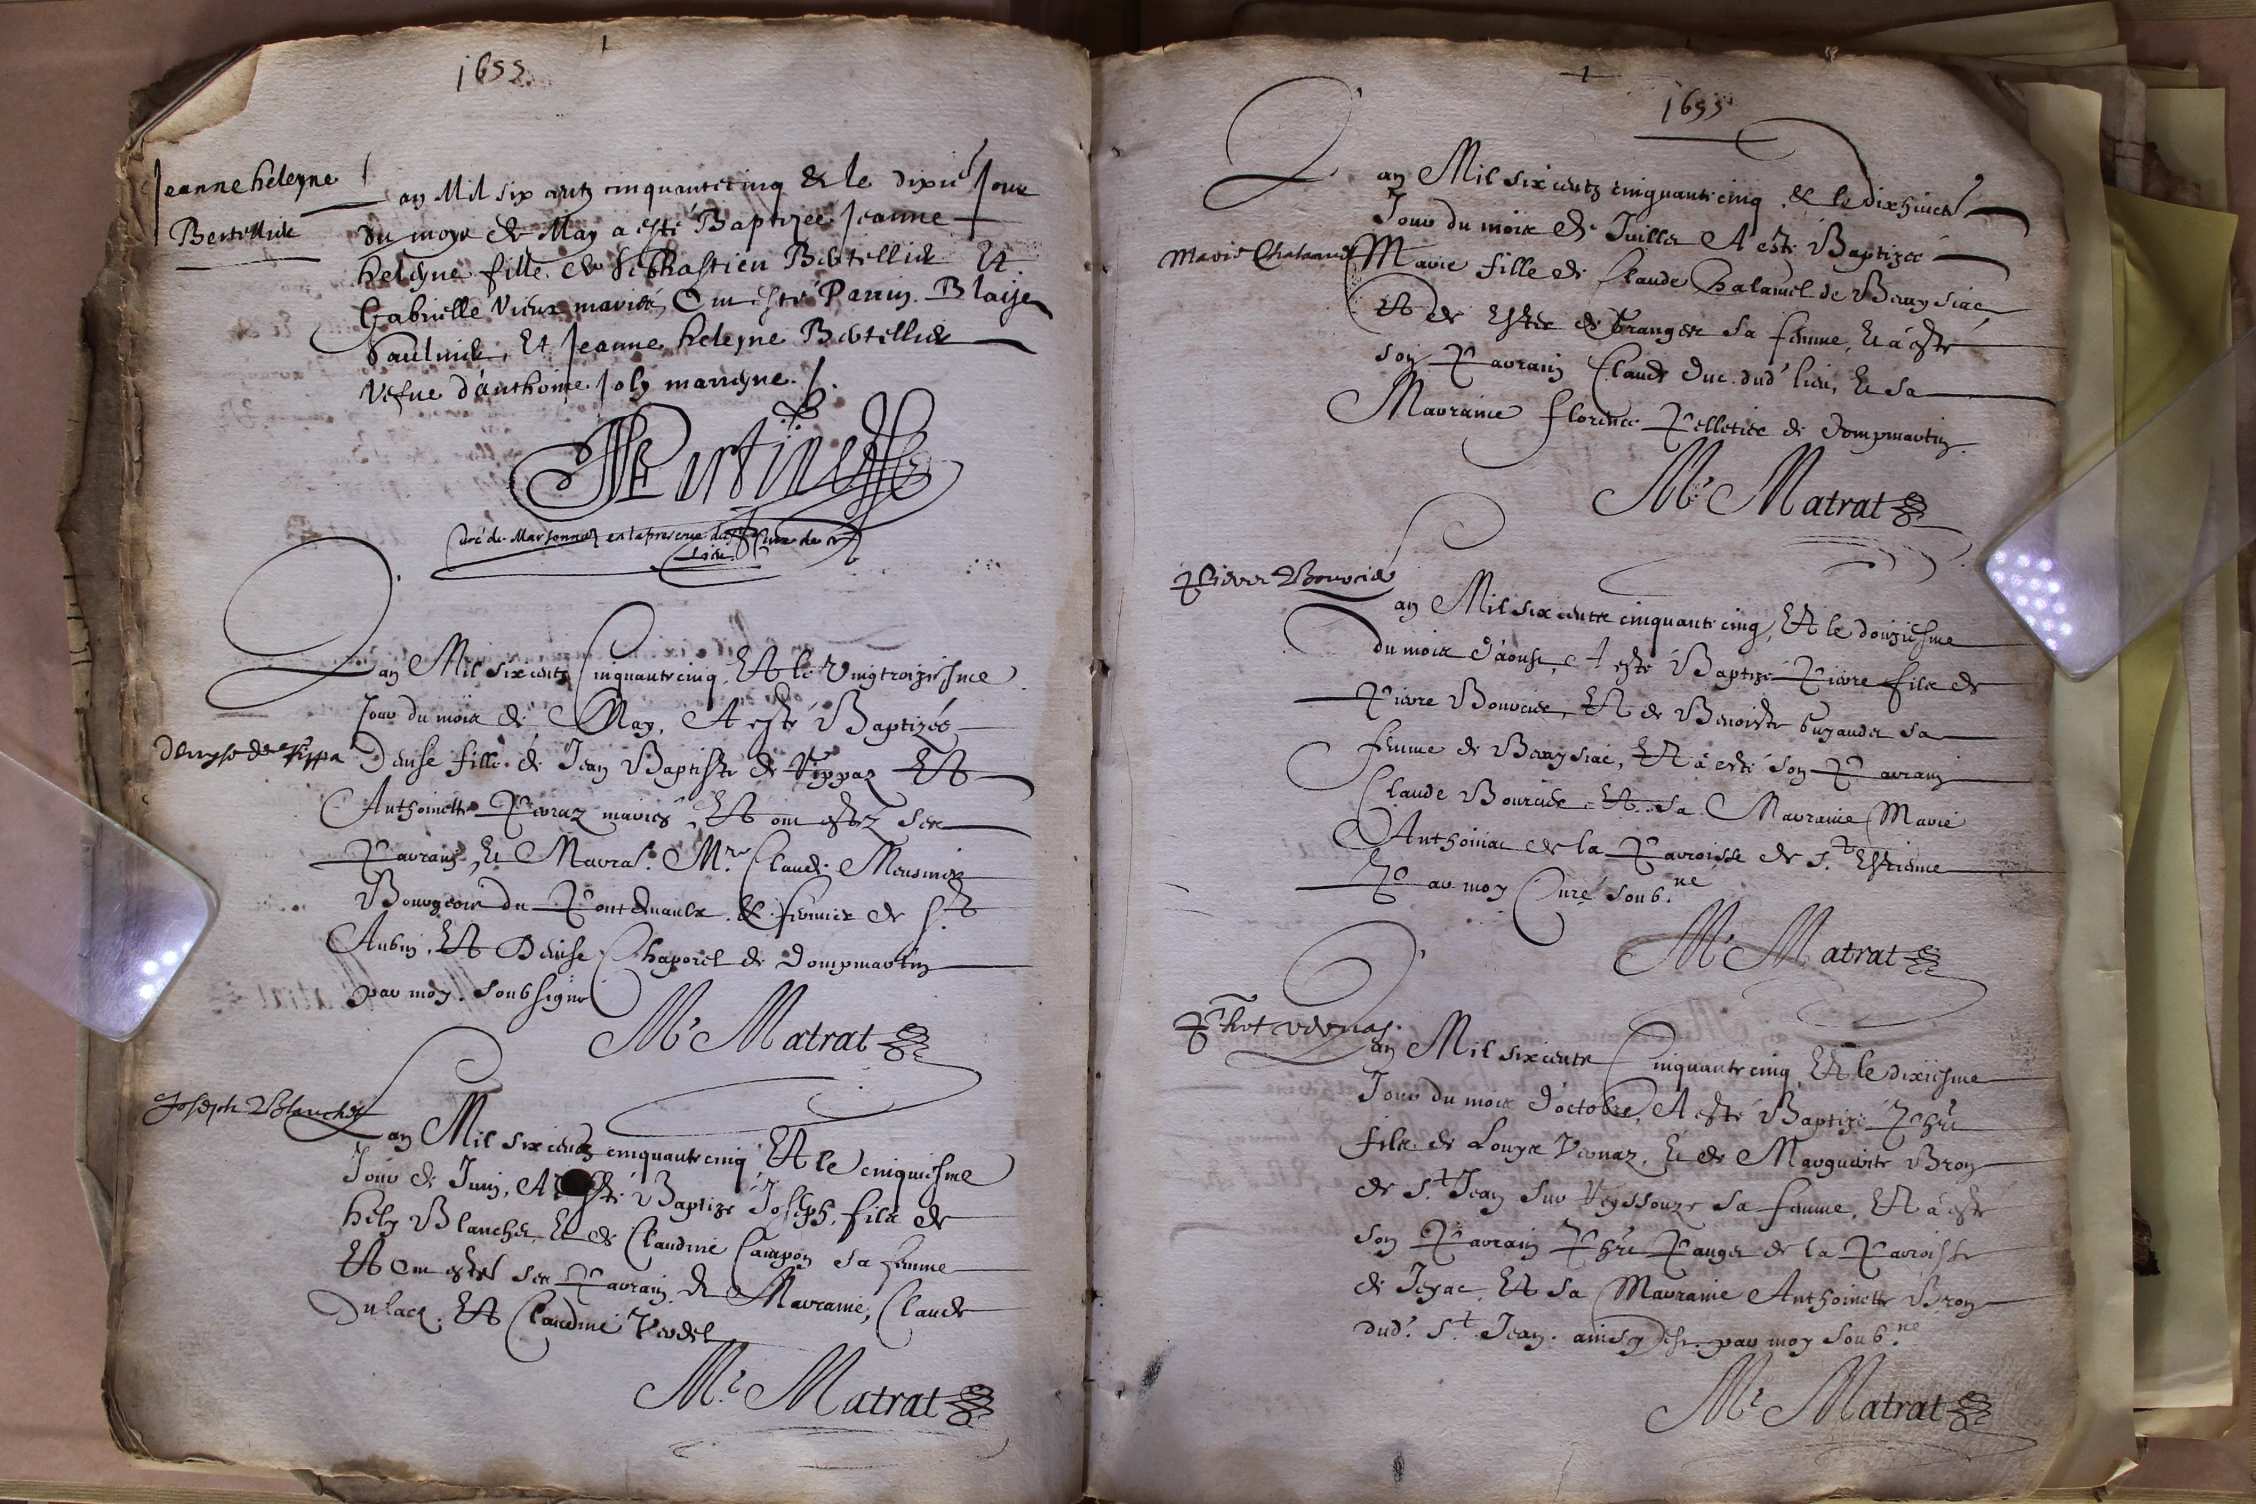 1655.
Jeanne heleyne
Bertellier
L an Mil six centz cinquante cinq & le dixie Jour
du moys de May a esté Baptizée Jeanne
heleyne fille de Sebastien Bertellier Et
Gabrielle Vieux mariés, Ont esté Parrin Blaise
Saulnier, Et Jeanne heleyne Bertellier
Vefue d'anthoine Joly marreyne.
Curé de Marsonnaz en la presence du Sr Curé de ce
Lieu
L an Mil six centz Cinquante cinq, Et le Vingtroiziesme
Jour du mois de May, A esté Baptizée
Denyse de
Denise fille de Jean Baptiste de Et
Anthoinette mariés, Et ont estez ses
Parrain, Et Marra. Mre Claude
Bourgeois du Pontdevaulx & fermier de St
Aubin, Et Denise de Dompmartin
par moy soubsigné
Mre Matrat
Joseph Blanchet
L an Mil six centz cinquante cinq Et le cinquiesme
Jour de Juin, A esté Baptizé Joseph, filz de
hely Blanchet, Et de Claudine sa femme
Et Ont estez ses Parrain & Marraine, Claude
Dulacq, Et Claudine
Mre Matrat
1655
L an Mil six centz cinquante cinq, & le dixhuict
Jour du mois de Juillet A esté Baptizée
Marie
Marie fille de Claude Chalamel de
Et de Ester de Granger sa femme, Et à esté
son Parrain Claude Duc dud' lieu, Et sa
Marraine florence Pelletier de Dompmartin.
Mre Matrat
Pierre
L an Mil six centz cinquante cinq, Et le douziesme
du mois d'aoust, A esté Baptizé Pierre filz de
Pierre Et de Benoiste sa
femme de Et à esté son Parrain
Claude Et sa Marraine Marie
Anthoinaz de la Parroisse de St Estienne
Par moy Curé soub.né
Mre Matrat
L an Mil six centz Cinquante cinq, Et le dixiesme
Jour du mois d'octobre, A esté Baptizé
filz de Louys Et de Marguerite Broy
de St Jean sur Reyssouze sa femme, Et à esté
son Parrain Pauget de la Parroisse
de Et sa Marraine Anthoinette Broy
dud. St Jean. ainsy est. par moy soub.né
Mre Matrat